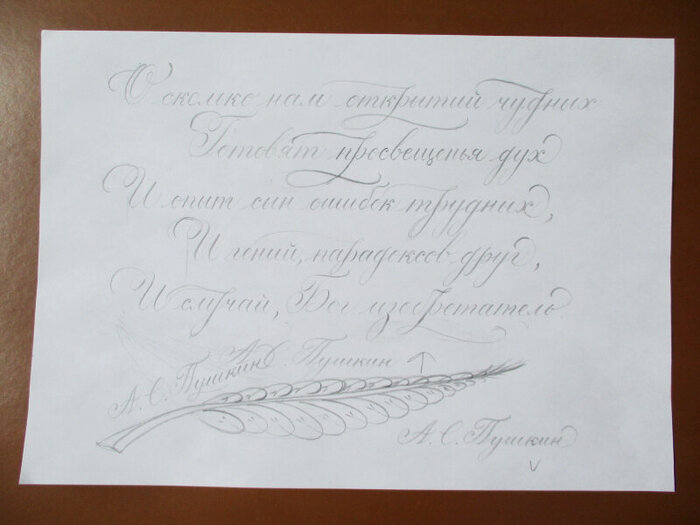 О сколько нам открытий чудных
Готовят просвещенья дух
И опыт сын ошибок трудных,
И гений, парадоксов друг,
И случай, Бог изобретатель
А. С. Пушкин
А. С. Пушкин
А. С. Пушкин